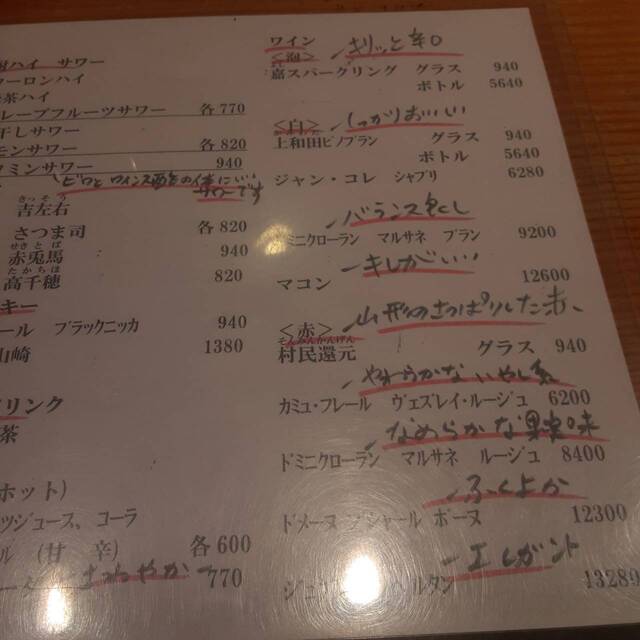 ハイ サワー
ーロンハイ
茶ハイ
レープフルーツサワー 各770
干しサワー
モンサワー 各820
タミンサワー 940
きっそう
吉左右
さつま司 各820
せきとば
赤兎馬 940
たかちほ
高千穂 820
キー
ール ブラックニッカ 940
山崎 1380
ドリンク
茶
ホット)
ツジュース、コーラ
ル (甘 辛) 各600
さわやか 770
ワイン
<泡> キリッと辛口
嘉スパークリング グラス 940
ボトル 5640
<白> しっかりおいしい
上和田ピノブラン グラス 940
ボトル 5640
ジャン・コレ シャブリ 6280
バランス良し
ミニクローラン マルサネ ブラン 9200
キレがいい
マコン 12600
山形のさっぱりした赤、
<赤>
そんみんかんげん
村民還元 グラス 940
やわらかな いやし系
カミュ・フレール ヴェズレイ・ルージュ 6200
なめらかな果実味
ドミニクローラン マルサネ ルージュ 8400
ふくよか
ドメーヌ シャール ボーヌ 12300
エレガント
ジュ タン 13289